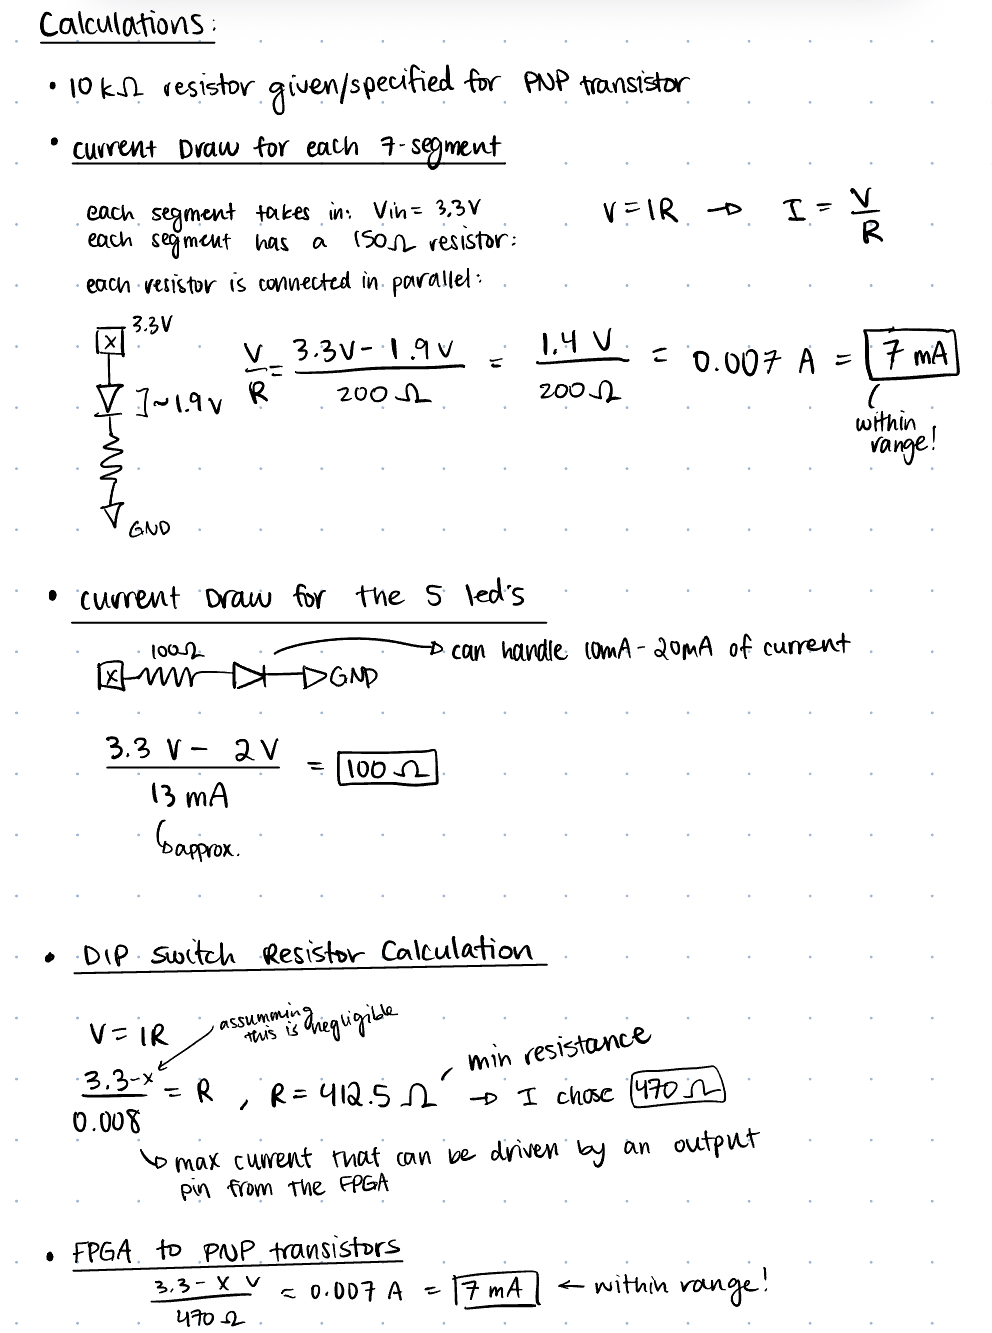 Calculations:
• 10 kΩ resistor given/specified for PNP transistor
• current Draw for each 7-segment
each segment takes in: Vin = 3.3V
each segment has a 150Ω resistor:
each resistor is connected in parallel:
V = IR → I = V/R
3.3V
X
]~1.9V
GND
V/R = (3.3V - 1.9V)/200Ω = 1.4V/200Ω = 0.007 A = 7 mA
within range!
• current Draw for the 5 led's
100Ω
X
GND
→ can handle 10mA - 20mA of current
(3.3 V - 2V)/13 mA = 100 Ω
→ approx.
• DIP Switch Resistor Calculation
V = IR
assumming this is negligible
(3.3-x)/0.008 = R , R = 412.5 Ω → I chose 470 Ω
min resistance
→ max current that can be driven by an output
pin from the FPGA
• FPGA to PNP transistors
(3.3 - X V)/470 Ω ≈ 0.007 A = 7 mA ← within range!